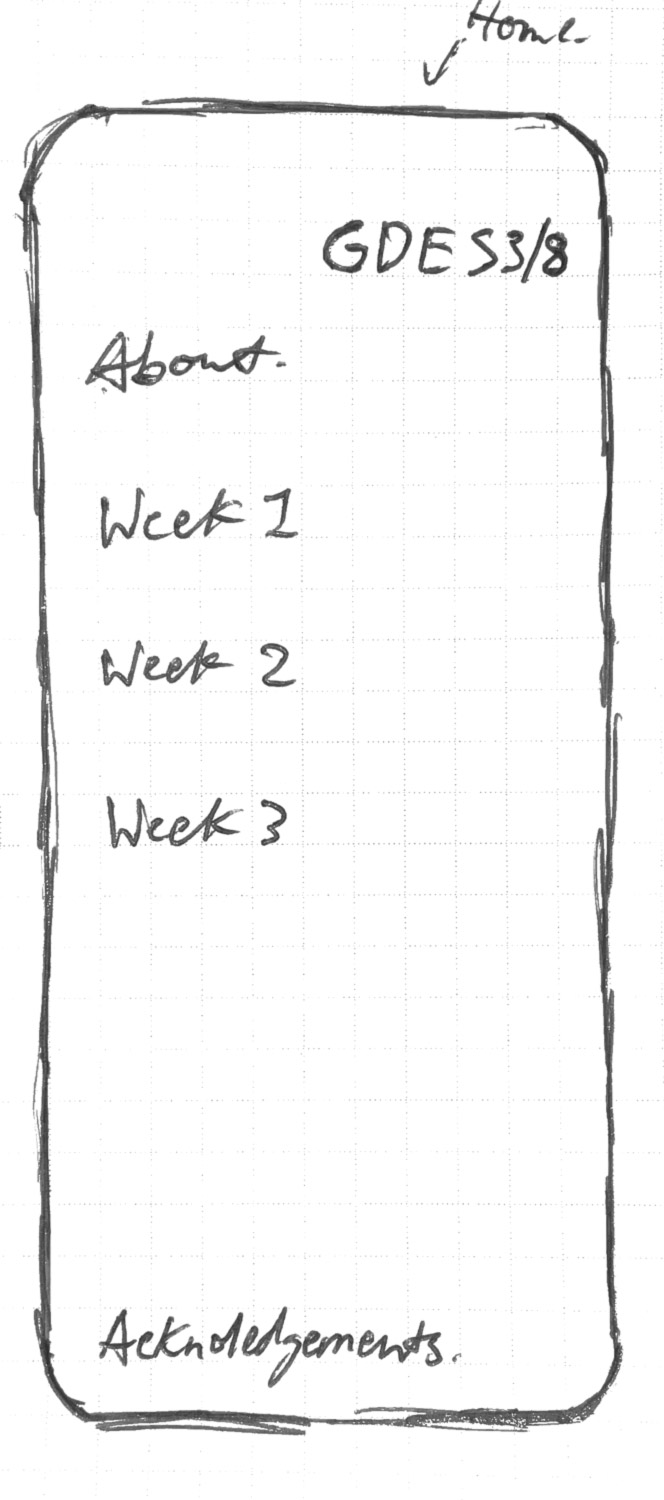 Home.
GDES3/8
About.
Week 1
Week 2
Week 3
Acknoledgements.